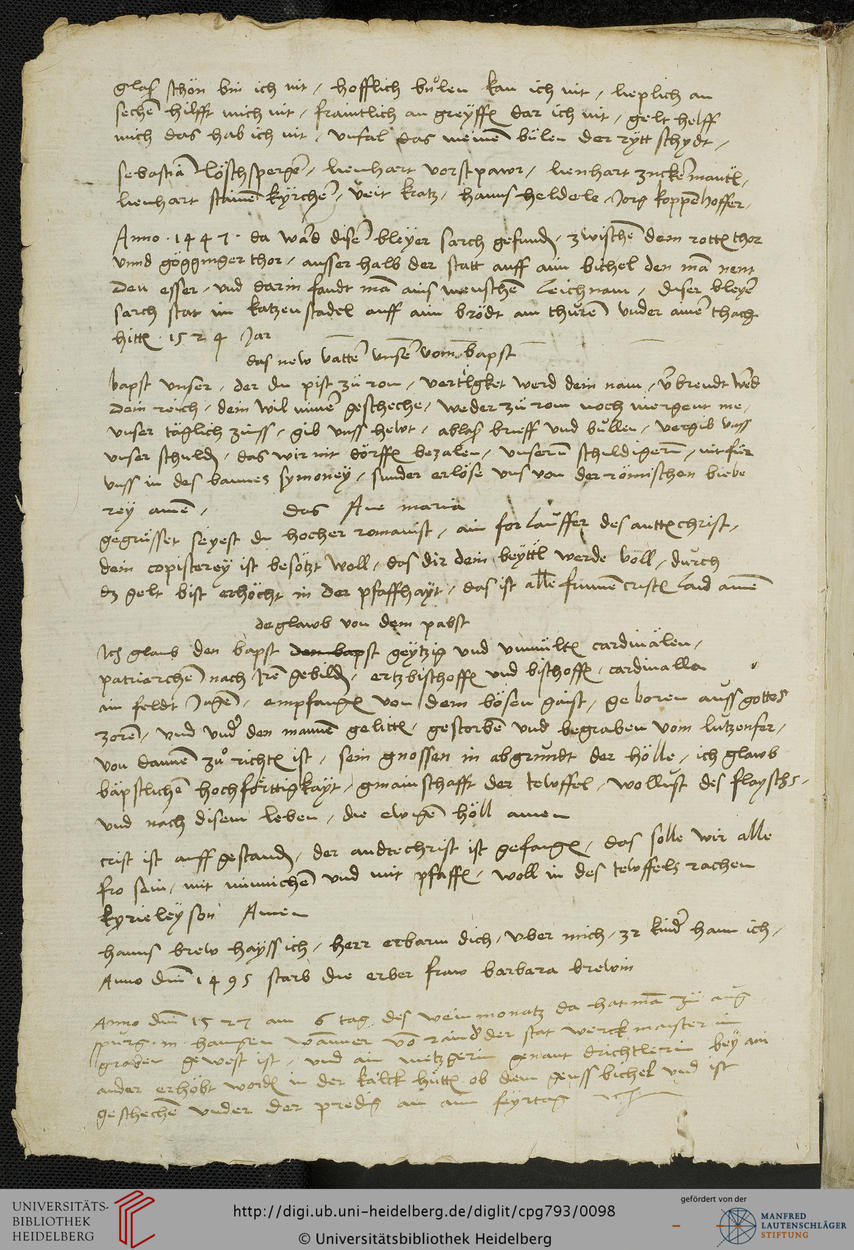 glaß schön bin ich nit / hofflich bůlen kan ich nit / lieplich an
sechē hilfft mich nit / fraintlich an greyffē dar ich nit / gelt helff
mich das hab ich nit / unfal das meinē bůlen der rytt schydt /
sebastiā löschspergē / lienhart vorstpawr / lienhart zuckēmantl /
lienhart stainē kyrchē / veit kratz / hanns helderle / Jorg koppēhoffer /
Anno · 1447 · da ward disē bleyer sarch gefundē / zwischē dem rottē thor
unnd gögginger thor / ausser halb der statt auff aim bichel den mā nent
den esser / und darin fandt mā ains menschē leichnam / diser bleyē
sarch stat im katzenstadel auff aim brödt am thurē under ainē thach
hittē · 1524 Jar
das new vattē unsē vom bapst
bapst unser / der du pist zů rom / vertilgket werd dein nam / vbrendt werd
dein reich / dein wil nimē geschechē / weder zů rom noch niergent me /
unser täglich zinss / gib unss hewt / ablas brieff und bullen / vergib unss
unser schuldē / das wir nit dörffē bezalen / unserū schuldigerū / nit fier
unss in des bannes symoney / sunder erlöse uns von der römischen biebe
rey amē / das Ave maria
gegrüsset seyest du hocher romanist / ain forlauffer des anttxchrist /
dein copisterey ist besötzt woll / das dir dein beyttl werde voll / durch
dz gelt bist erhöcht in der pfaffhayt / das ist alle frumē cristē laid amē
de glawb von dem pabst
Ich glaub den bapst den bapst geytzig und unmiltē cardinälen /
patriarchē nach Irē gebildē / ertzbischoffē und bischoffē / cardinalla
im feldt Jagē / empfangē von dem bösen gaist / geboren auss gottes
zorē / und undē den mannē gelittē / gestorbē und begraben vom lutzenfer /
von dannē zů richtē ist / sein gnossen in abgrundt der hölle / ich glawb
bäpstlichē hochförttigkayt / gmainschafft der tewffel / wollust des flayschs /
und nach disem leben / die ewigē höll amen
crist ist auffgestandē / der andtechrist ist gefangē / das solle wir alle
fro sein / mit minnichē und mit pfaffē / woll in des tewffels rachen
kyrieleyson Amen
hanns brew hayss ich / herr erbarm dich / uber mich / 32 kindē ham ich /
Anno dm̄ 1495 starb die erber fraw barbara brewin
Anno dm̄ 1527 am 6 tag des weinmonatz da hat mā zu aug
spurg · m · hansen von rain der stat werck maister im
graben gewest ist / und ain metzgerin genant bey ain
ander erhöbt wordē in der kalck hüttē ob dem geuss bichel und ist
geschechē under der predig an aim feyrtag
UNIVERSITÄTS-
BIBLIOTHEK
HEIDELBERG
http://digi.ub.uni-heidelberg.de/diglit/cpg793/0098
© Universitätsbibliothek Heidelberg
gefördert von der
MANFRED
LAUTENSCHLÄGER
STIFTUNG